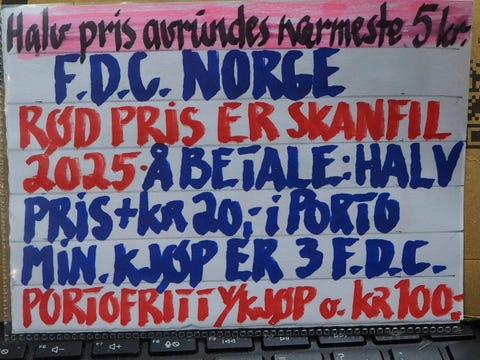 Halv pris avrundes nærmeste 5 kr
F.D.C. NORGE
RØD PRIS ER SKANFIL
2025. Å BETALE: HALV
PRIS + kR 20,- i PORTO
MiN. KJØP ER 3 F.D.C.
PORTOFRITT v/KJØP o. kR 100,-